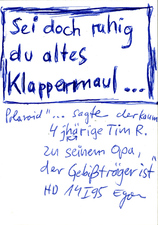 Sei doch ruhig
du altes
Klappermaul...
Polaroid "... sagte der kaum
4 jhärige Tim R.
zu seinem Opa,
der Gebißträger ist"
HD 14I95 Egon